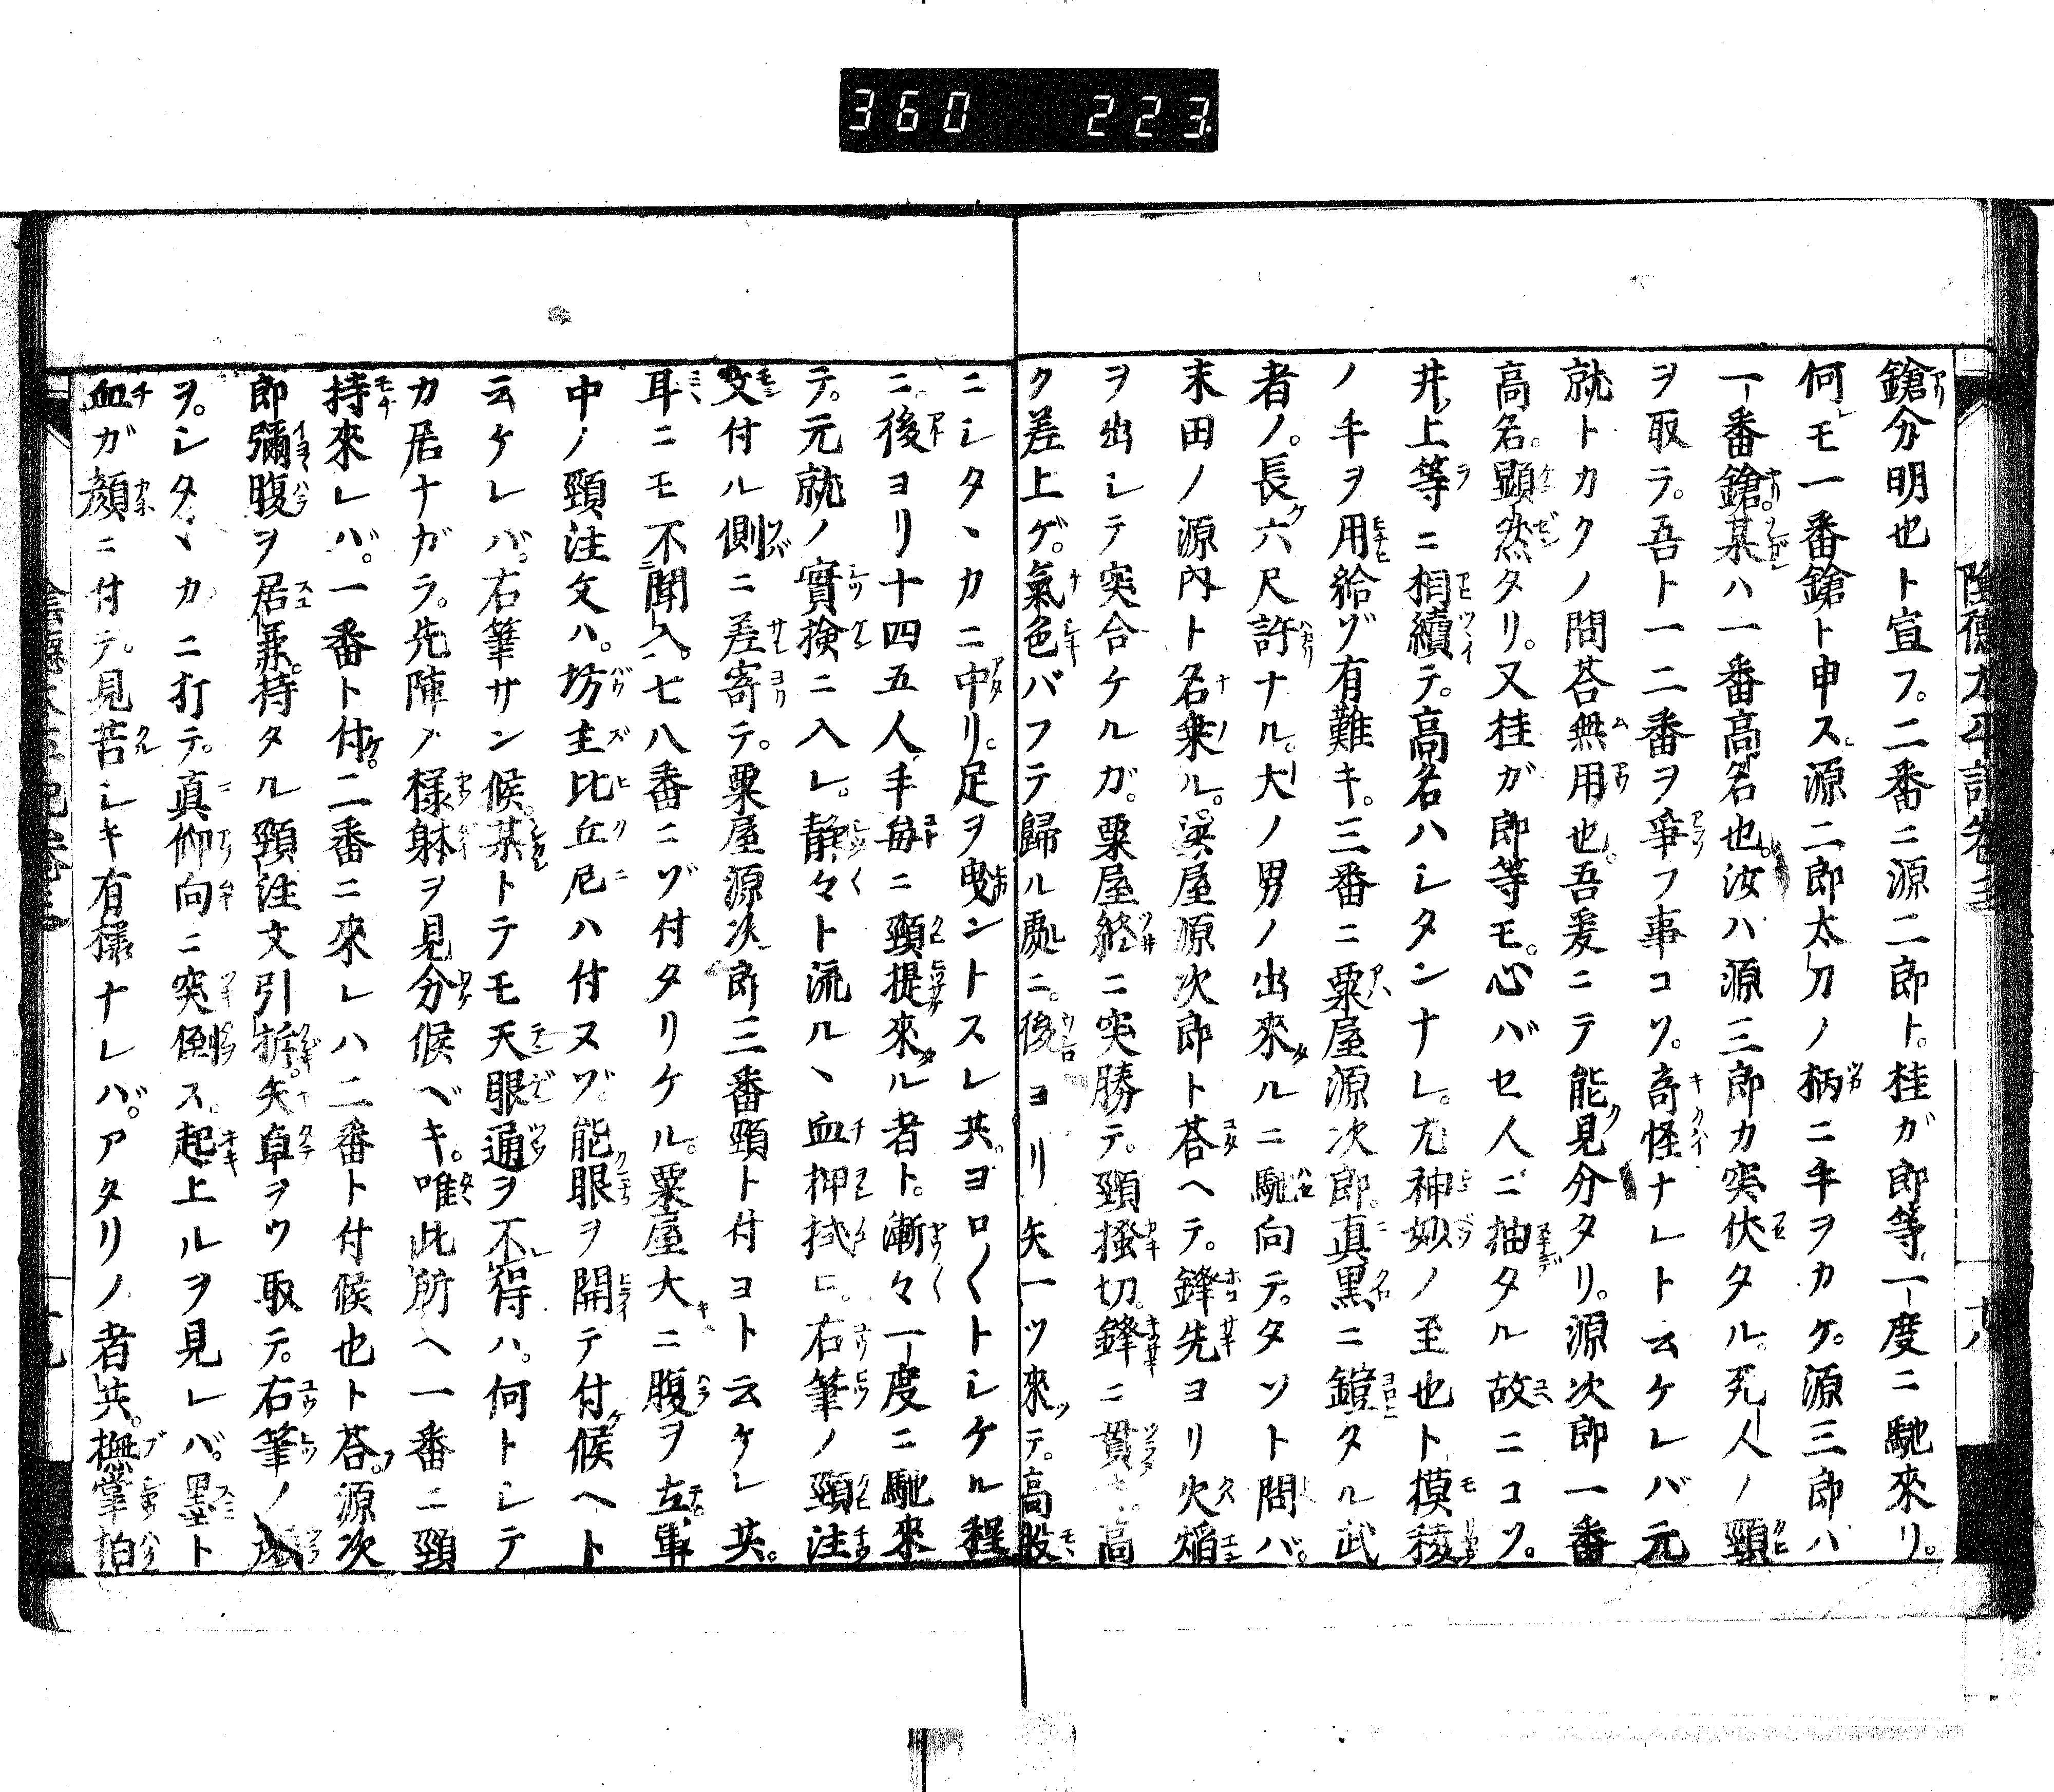 360 223
鎗分明也ト宣フ。二番ニ源二郎ト。桂ガ郎等一度ニ馳來リ。
何モ一番鎗ト申ス。源二郎太刀ノ柄ニ手ヲカケ。源三郎ハ
一番鎗。某ハ一番高名也。汝ハ源三郎カ突伏タル。死人ノ頸
ヲ取ラ。吾ト一二番ヲ爭フ事コソ。奇怪ナレト云ケレバ元
就トカクノ問荅無用也。吾爰ニテ能見分タリ。源次郎一番
高名。顕然タリ。又桂ガ郎等モ。心バセ人ニ抽タル故ニコソ。
井上等ニ相續テ。高名ハシタンナレ。尤神妙ノ至也ト摸稜
ノ手ヲ用給ゾ有難キ。三番ニ粟屋源次郎。真黒ニ鎧タル武
者ノ。長六尺許ナル。大ノ男ノ出來ルニ馳向テ。タソト問バ。
末田ノ源内ト名乗ル。粟屋源次郎ト荅ヘテ。鋒先ヨリ火焔
ヲ出シテ突合ケルガ。粟屋終ニ突勝テ。頸搔切。鋒ニ貫キ。高
ク差上ゲ。氣色バフテ歸ル處ニ。後ヨリ矢一ツ來テ。高股
ニシタヽカニ中リ。足ヲ曳ントスレ共。ヨロ〱トシケル程
ニ。後ヨリ十四五人手毎ニ頸提來ル者ト。漸々一度ニ馳來
テ。元就ノ實検ニ入レ。静々ト流ルヽ血押拭ヒ。右筆ノ頸注
文付ル側ニ差寄テ。粟屋源次郎三番頸ト付ヨト云ケレ共。
耳ニモ不聞入。七八番ニゾ付タリケル。粟屋大ニ腹ヲ立。軍
中ノ頸注文ハ。坊主比丘尼ハ付ヌゾ。能眼ヲ開テ付候ヘト
云ケレバ。右筆サン候。某トテモ天眼通ヲ不得ハ。何トシテ
カ居ナガラ。先陣ノ様躰ヲ見分候ベキ。唯此所ヘ一番ニ頸
持來レバ。一番ト付。二番ニ來レハ二番ト付候也ト荅。源次
郎彌腹ヲ居兼。持タル頸注文引拆。矢卓ヲツ取テ。右筆ノ
ヲ。シタヽカニ打テ。真仰向ニ突倒ス。起上ルヲ見レバ。墨ト
血ガ顔ニ付テ。見苦シキ有様ナレバ。アタリノ者共。撫掌拍